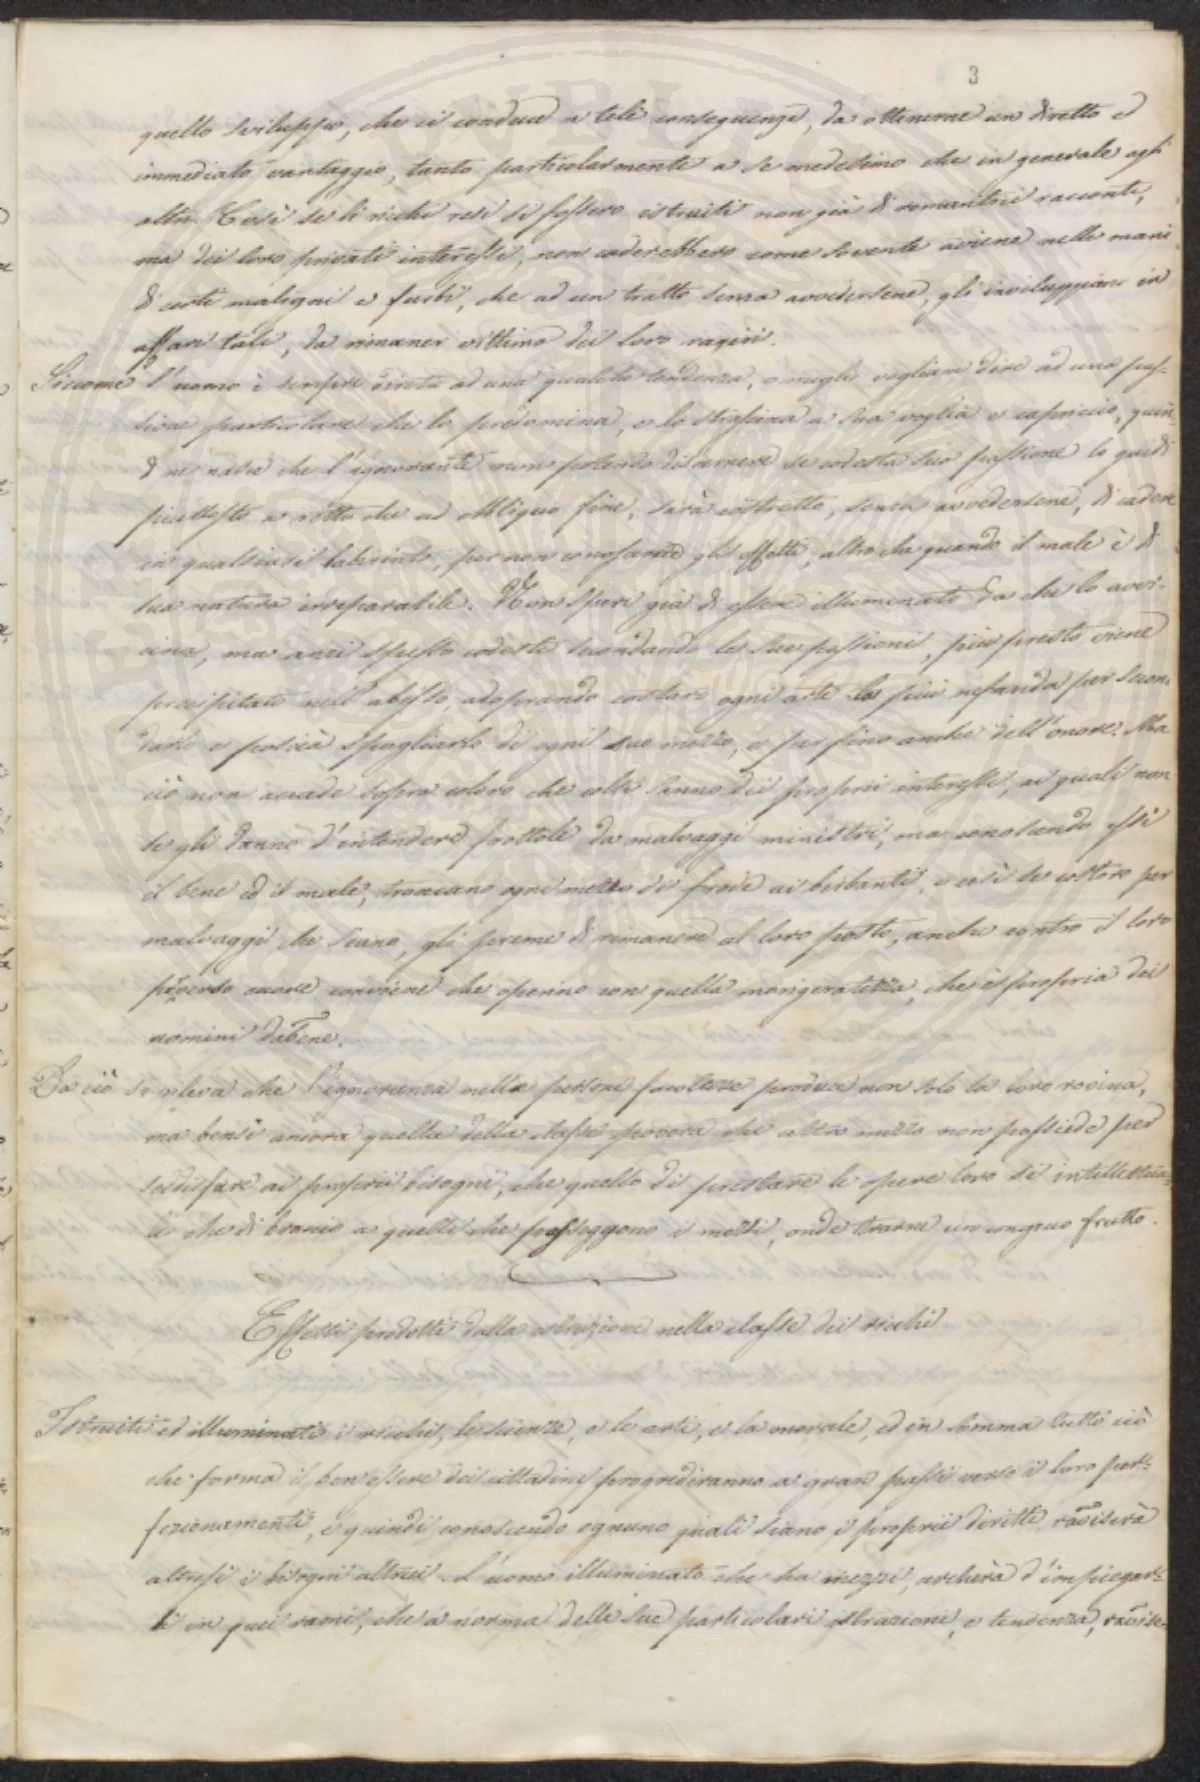 3
quello sviluppo, che ci conduce a tali conseguenze, da ottenerne un diretto ed
immediato vantaggio, tanto particolarmente a se medesimo che in generale agli
altri. Così se li ricchi resi si fossero istruiti non già di romantici racconti,
ma dei loro privati interessi, non caderebbero come sovente aviene nelle mani
di certi maligni e furbi, che ad un tratto senza avvedersene, gli inviluppano in
affari tali, da rimaner vittima dei loro ragiri.
Siccome l'uomo è sempre diretto ad una qualche tendenza, o meglio vogliam dire ad una pas-
sione particolare che lo predomina, e lo strascina a sua voglia e capriccio, quin-
di ne nasce che l'ignorante non potendo discernere se codesta sua passione lo guidi
piuttosto a retto che ad obbliquo fine, sarà costretto, senza avvedersene, di cadere
in qualsiasi labirinto, per non conoscerne gli effetti, altro che quando il male è di
sua natura irreparabile. Non speri già di essere illuminato da chi lo avvi-
cina, ma anzi spesso codesti secondando le sue passioni, più presto viene
precipitato nell'abisso, adoprando costoro ogni arte la più nefanda per secon-
darlo e poscia spogliarlo di ogni suo mezzo, e per fino anche dell'onore. Ma
ciò non accade sopra coloro che colti sanno dei proprii interessi, ai quali non
se gli danno d'intendere frottole da malvaggi ministri, ma conoscendo essi
il bene ed il male, troncano ogni mezzo di frode ai birbanti, e così se costoro per
malvaggi che siano, gli preme di rimanere al loro posto, anche contro il loro
perverso cuore conviene che operino con quella morigeratezza, che è propria dei
uomini dabene.
Da ciò si rileva che l'ignoranza nelle persone facoltose produce non solo la loro rovina,
ma bensì ancora quella della classe povera che altro mezzo non possiede per
soddisfare ai proprii bisogni, che quello di prestare le opere loro sì intellettua-
li che di braccio a quelli che posseggono i mezzi, onde trarne un congruo frutto.
Effetti prodotti dalla istruzione nella classe dei ricchi
Istruiti ed illuminati i ricchi, le scienze, e le arti, e la morale, ed in somma tutto ciò
che forma il ben essere dei cittadini progrediranno a gran passi verso i loro per-
fezionamenti, e quindi conoscendo ognuno quali siano i proprii diritti ravviserà
altresì i bisogni altrui. L'uomo illuminato che ha mezzi, cercherà d'impiegar-
li in quei rami, che a norma delle sue particolari istruzioni, e tendenza, ravvise-